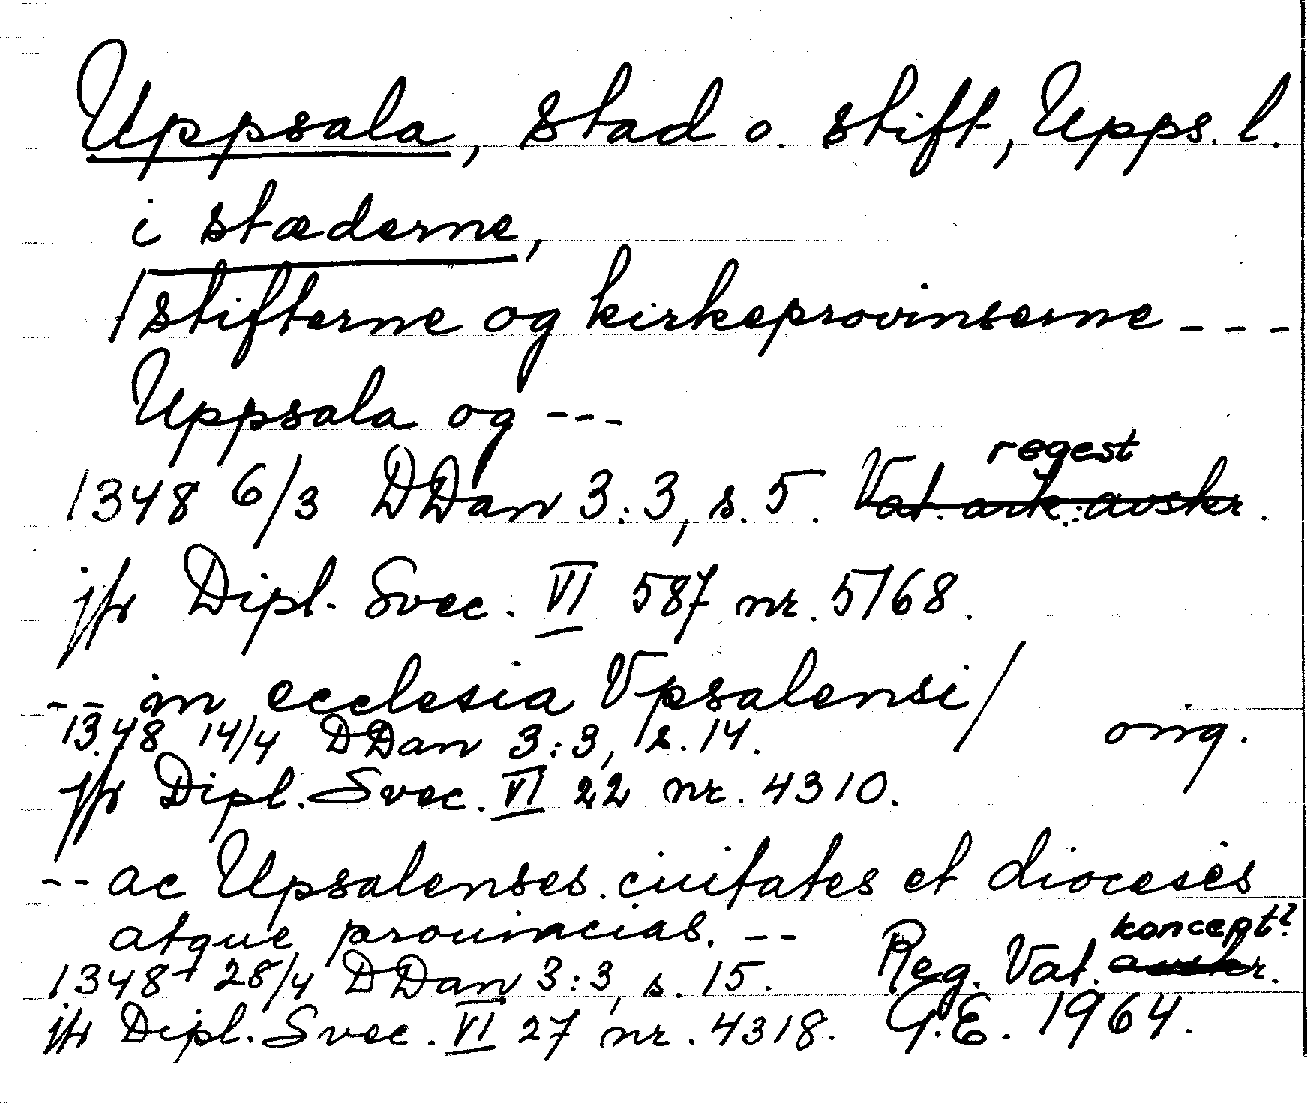 Uppsala, stad o. stift, Upps. l.
i stæderne,
/stifterne og kirkeprovinserne ---
Uppsala og ---
regest
1348 6/3 DDan 3:3, s. 5. Vat. ark. avskr.
jfr Dipl. Svec. VI 587 nr. 5768.
-- in ecclesia Vpsalensi/
1348 14/4 DDan 3:3, s. 14. orig.
jfr Dipl. Svec. VI 22 nr. 4310.
-- ac Upsalenses. ciuitates et diocesès
atque prouincias. --
koncept?
1348 28/4 DDan 3:3, s. 15. Reg. Vat. avskr.
jfr Dipl. Svec. VI 27 nr. 4318. G.E. 1964.